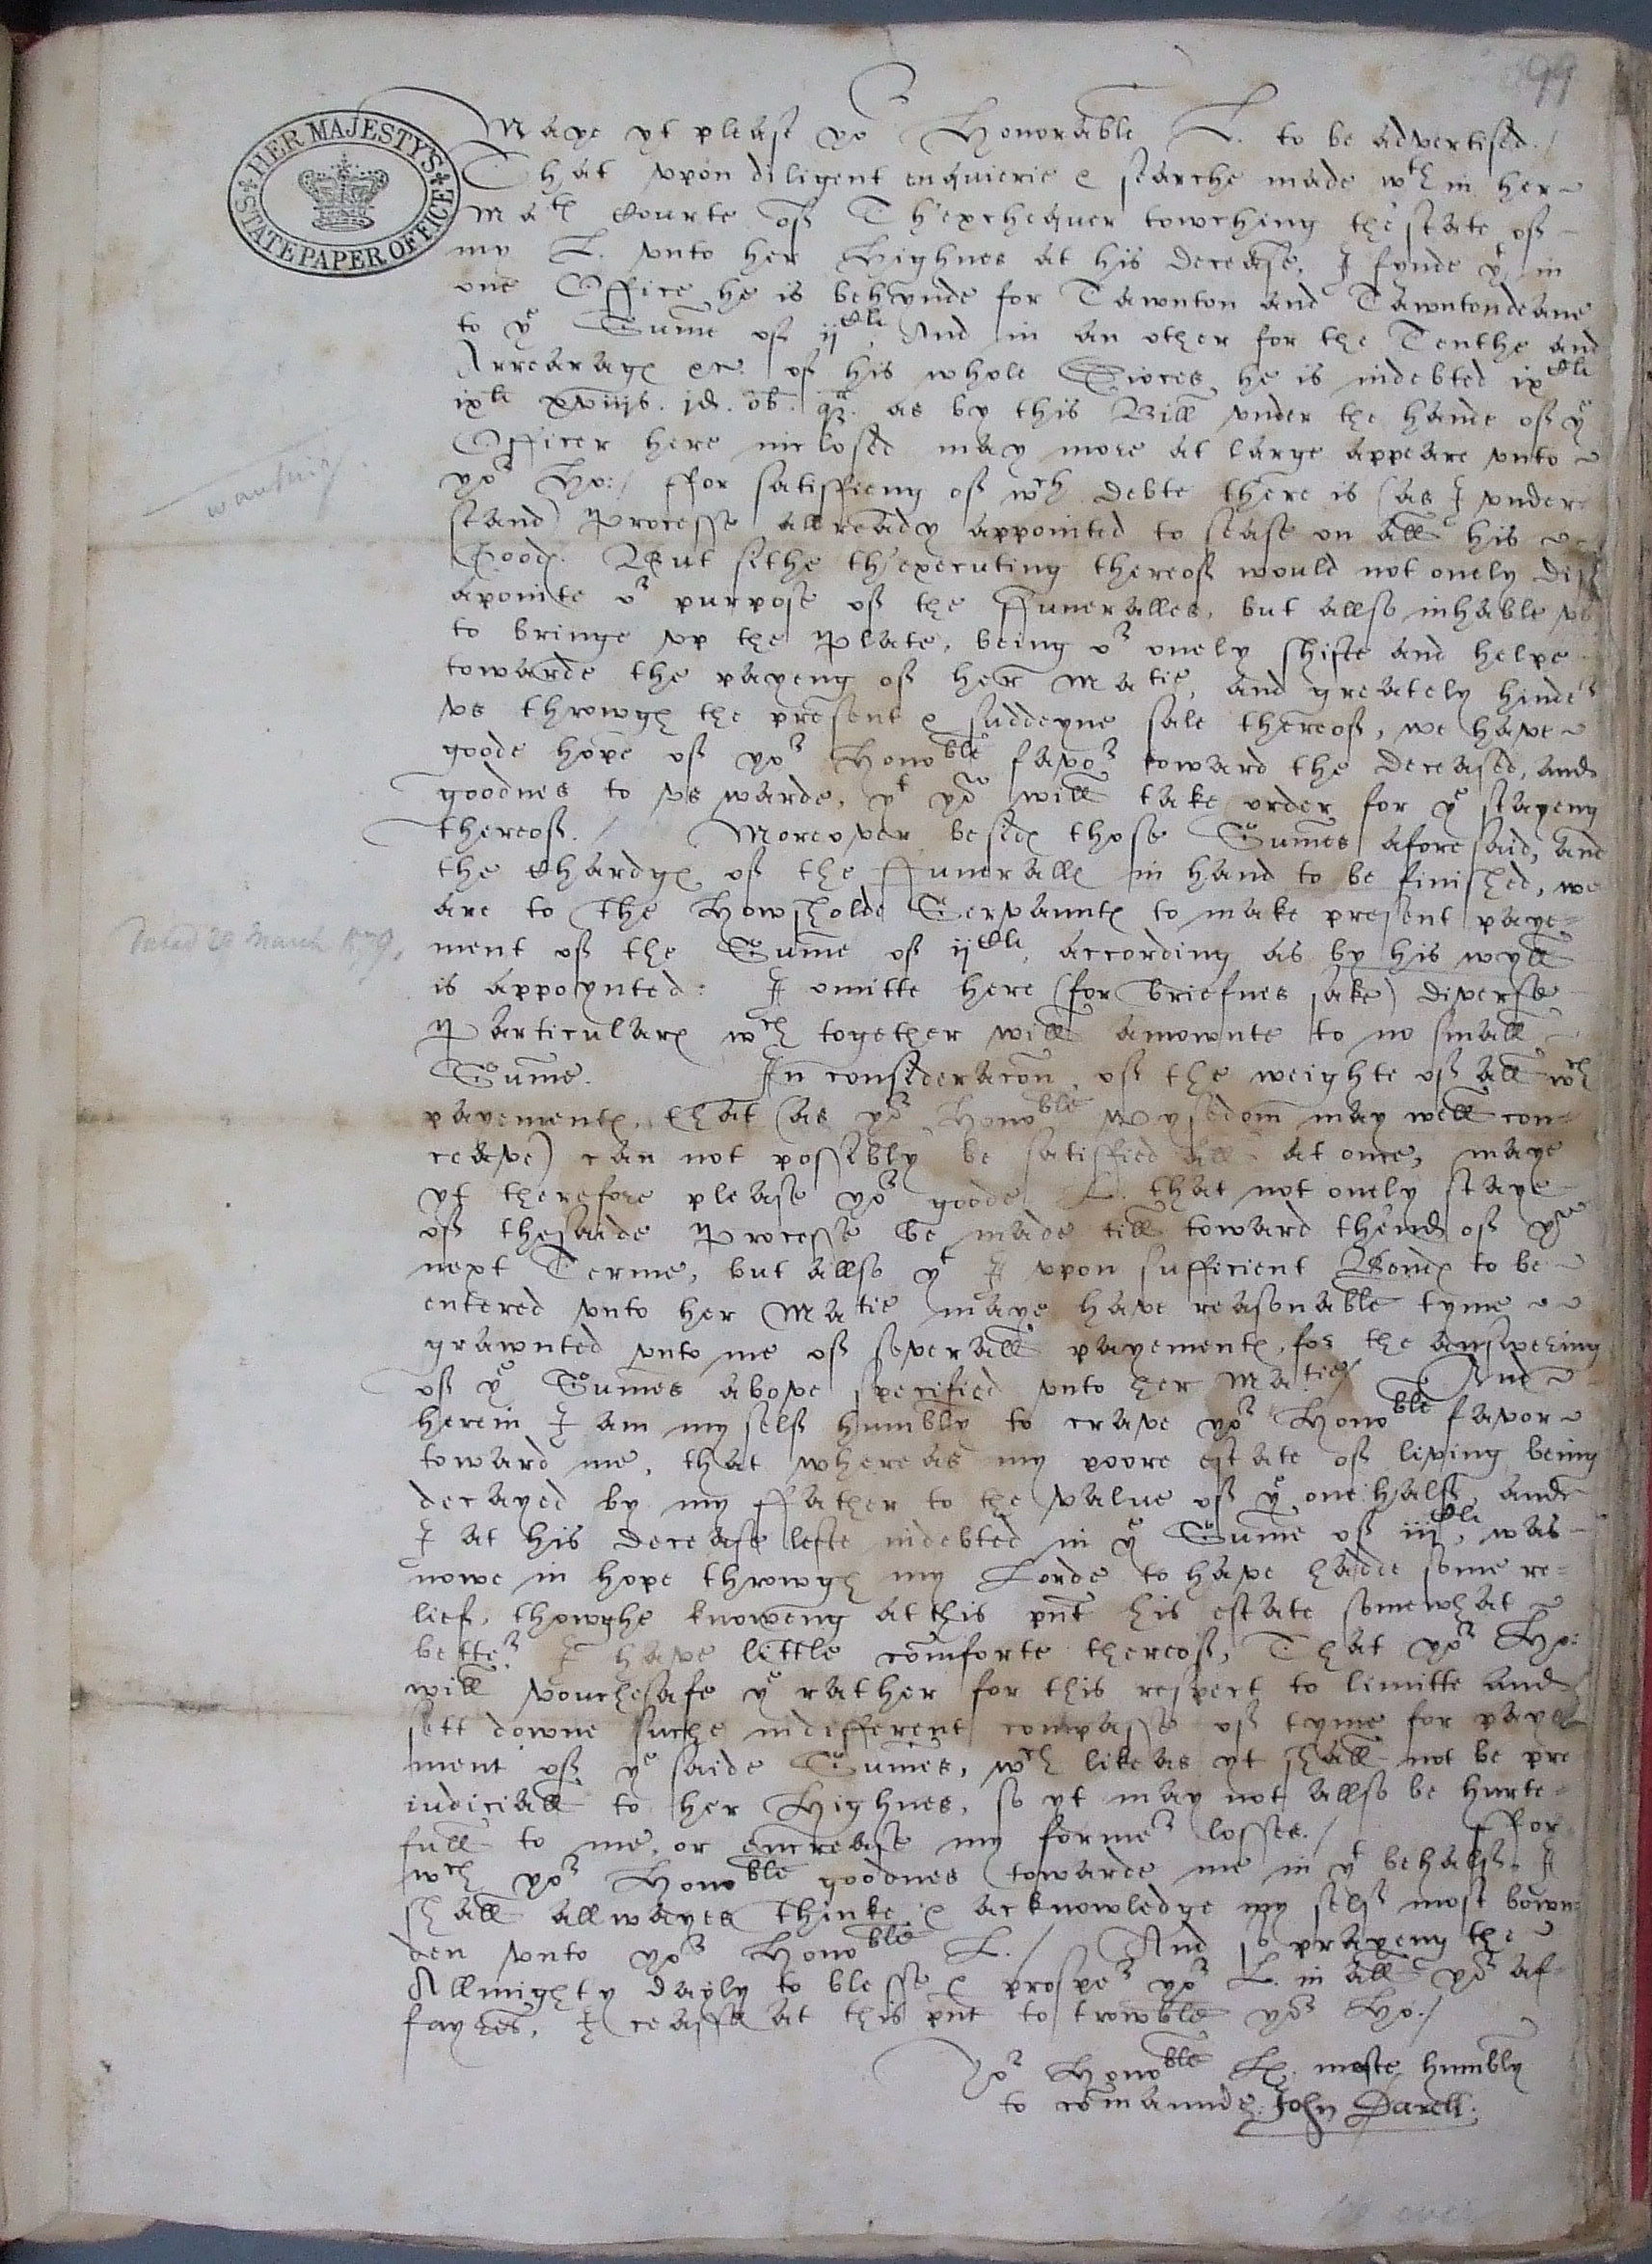 99
HER MAJESTY'S
STATE PAPER OFFICE
Maye yt please yor Honorable L. to be advertised./
That vpon diligent enquierie & searche made wth in her
Matie Courte of Th'exchequer towching the state of
my L. vnto her Highnes at his decease, I fynde yt in
one Office he is behynde for Tawnton and Tawntondeane
to ye Sume of ijCli. And in an other for the Tenthe and
Arrearages &c. of his whole Dioces he is indebted ixCli
ixli xviijs. jd. ob. qr. as by this Bill vnder the hande of ye
Officer here inclosed may more at large appeare vnto
wanting.
yor Ho:/ ffor satisfieng of wch debte there is (as I vnder=
stand) Processe allready appointed to sease on all his
Goodes. But sithe th'executing thereof would not onely dis
apointe or purpose of the ffuneralles, but allso inhable vs
to bringe vp the Plate, being or onely shifte and helpe
towarde the payeng of her Matie, and greately hinder
vs throwgh the present & suddeyne sale thereof, we have
goode hope of yor Honoble favor toward the deceased, and
goodnes to vs warde, yt yow will take order for ye stayeng
thereof./ Moreover besides those Sumes aforesaid, and
the Chardges of the ffuneralles in hand to be finished, we
are to the Howsholde Servauntes to make present paye=
Dated 20 March 1579.
ment of the Sume of ijCli, according as by his wyll
is appoynted: I omitte here (for briefnes sake) diverse
Particulars wch together will amownte to no small
Sume. In consideracon of the weighte of all wch
payementes, that (as yor Honoble wysedom may well con=
ceave) can not possibly be satisfied all at once, maye
yt therefore please yor goode L. that not onely staye
of thesaide Processe be made till toward thend of ye
next Terme, but allso yt I vpon sufficient Bondes to be
entered vnto her Matie maye have reasonable tyme
grawnted vnto me of severall payementes, for the answering
of ye Sumes above specified vnto her Matie/ And
herein I am my self humbly to crave yor Honoble favor
toward me, that whereas my poore estate of living being
decayed by my ffather to the value of ye one half, and
I at his decease lefte indebted in ye Sume of iijCli, was
nowe in hope throwgh my Lorde to have hadde some re=
lief, thowghe knoweng at this pnt his estate somewhat
better I have little comforte thereof, That yor Ho:
will vouchesafe ye rather for this respect to limitte and
sett downe suche indifferent compasse of tyme for paye
ment of ye saide Sumes, wch like as yt shall not be pre
iudiciall to her Highnes, so yt may not allso be hurte=
full to me, or encrease my former losses./ ffor
wch yor Honoble goodnes towarde me in yt behalf, I
shall allwayes thinke & acknowledge my self most bown=
den vnto yor Honoble L./ And so prayeng the
Allmighty dayly to blesse & prosper yor L. in all yor af=
fayres, I ceasse at this pnt to trowble yor Ho./
Yor Honoble Lps. moste humbly
to commaunde. John Darell.